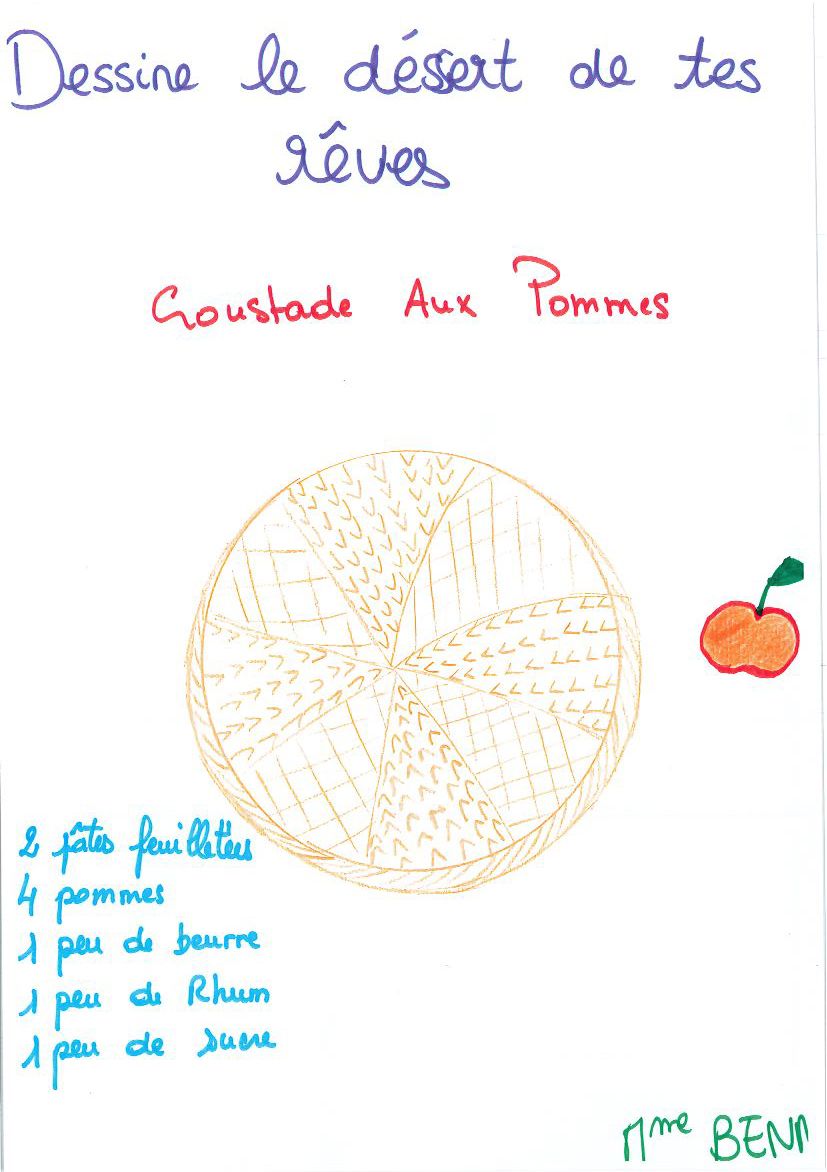 Dessine le déssert de tes
rêves
Croustade Aux Pommes
2 pâtes feuilletées
4 pommes
1 peu de beurre
1 peu de Rhum
1 peu de sucre
Mme BENM